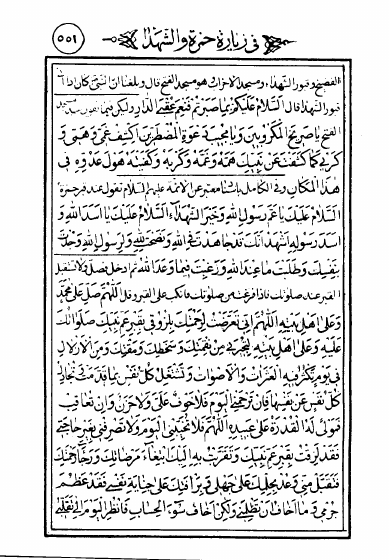 ٥٥١
في زيارة حمزة والشهداء
الفضيخ وقبور الشهداء ومسجد الاحزاب وهو مسجد الفتح قال وبلغنا ان النبي كان اذا اتى
قبور الشهداء قال السلام عليكم بما صبرتم فنعم عقبى الدار وليكن فيما تقول عند مسجد
الفتح يا صريخ المكروبين ويا مجيب دعوة المضطرين اكشف غمي وهمي و
كربي كما كشفت عن نبيك همه وغمه وكربه وكفيته هول عدوه في
هذا المكان وفي الكامل باسناد معتبر عن الائمة عليهم السلام تقول عند قبر حمزة
السلام عليك يا عم رسول الله وخير الشهداء السلام عليك يا اسد الله و
اسد رسوله اشهد انك قد جاهدت في الله ونصحت لله ولرسول الله وجدت
بنفسك وطلبت ما عند الله ورغبت فيما وعد الله ثم ادخل فصل ولا تستقبل
القبر عند صلوتك فاذا فرغت من صلوتك فانكب على القبر وقل اللهم صل على محمد
وعلى اهل بيته اللهم اني تعرضت لرحمتك بلزوقي بقبر عم نبيك صلواتك
عليه وعلى اهل بيته لتجيرني من نقمتك وسخطك ومقتك ومن الازلال
في يوم تكثر فيه المعرات والاصوات وتشتغل كل نفس بما قدمت وتجادل
كل نفس عن نفسها فان ترحمني اليوم فلا خوف علي ولا حزن وان تعاقب
فمولى له القدرة على عبده اللهم فلا تخيبني اليوم ولا تصرفني بغير حاجتي
فقد لزقت بقبر عم نبيك وتقربت به اليك ابتغاء مرضاتك ورجاء رحمتك
فتقبل مني وعد بحلمك على جهلي وبرأفتك على جناية نفسي فقد عظم
جرمي وما اخاف ان تظلمني ولكن اخاف سوء الحساب فانظر اليوم الى تقلبي